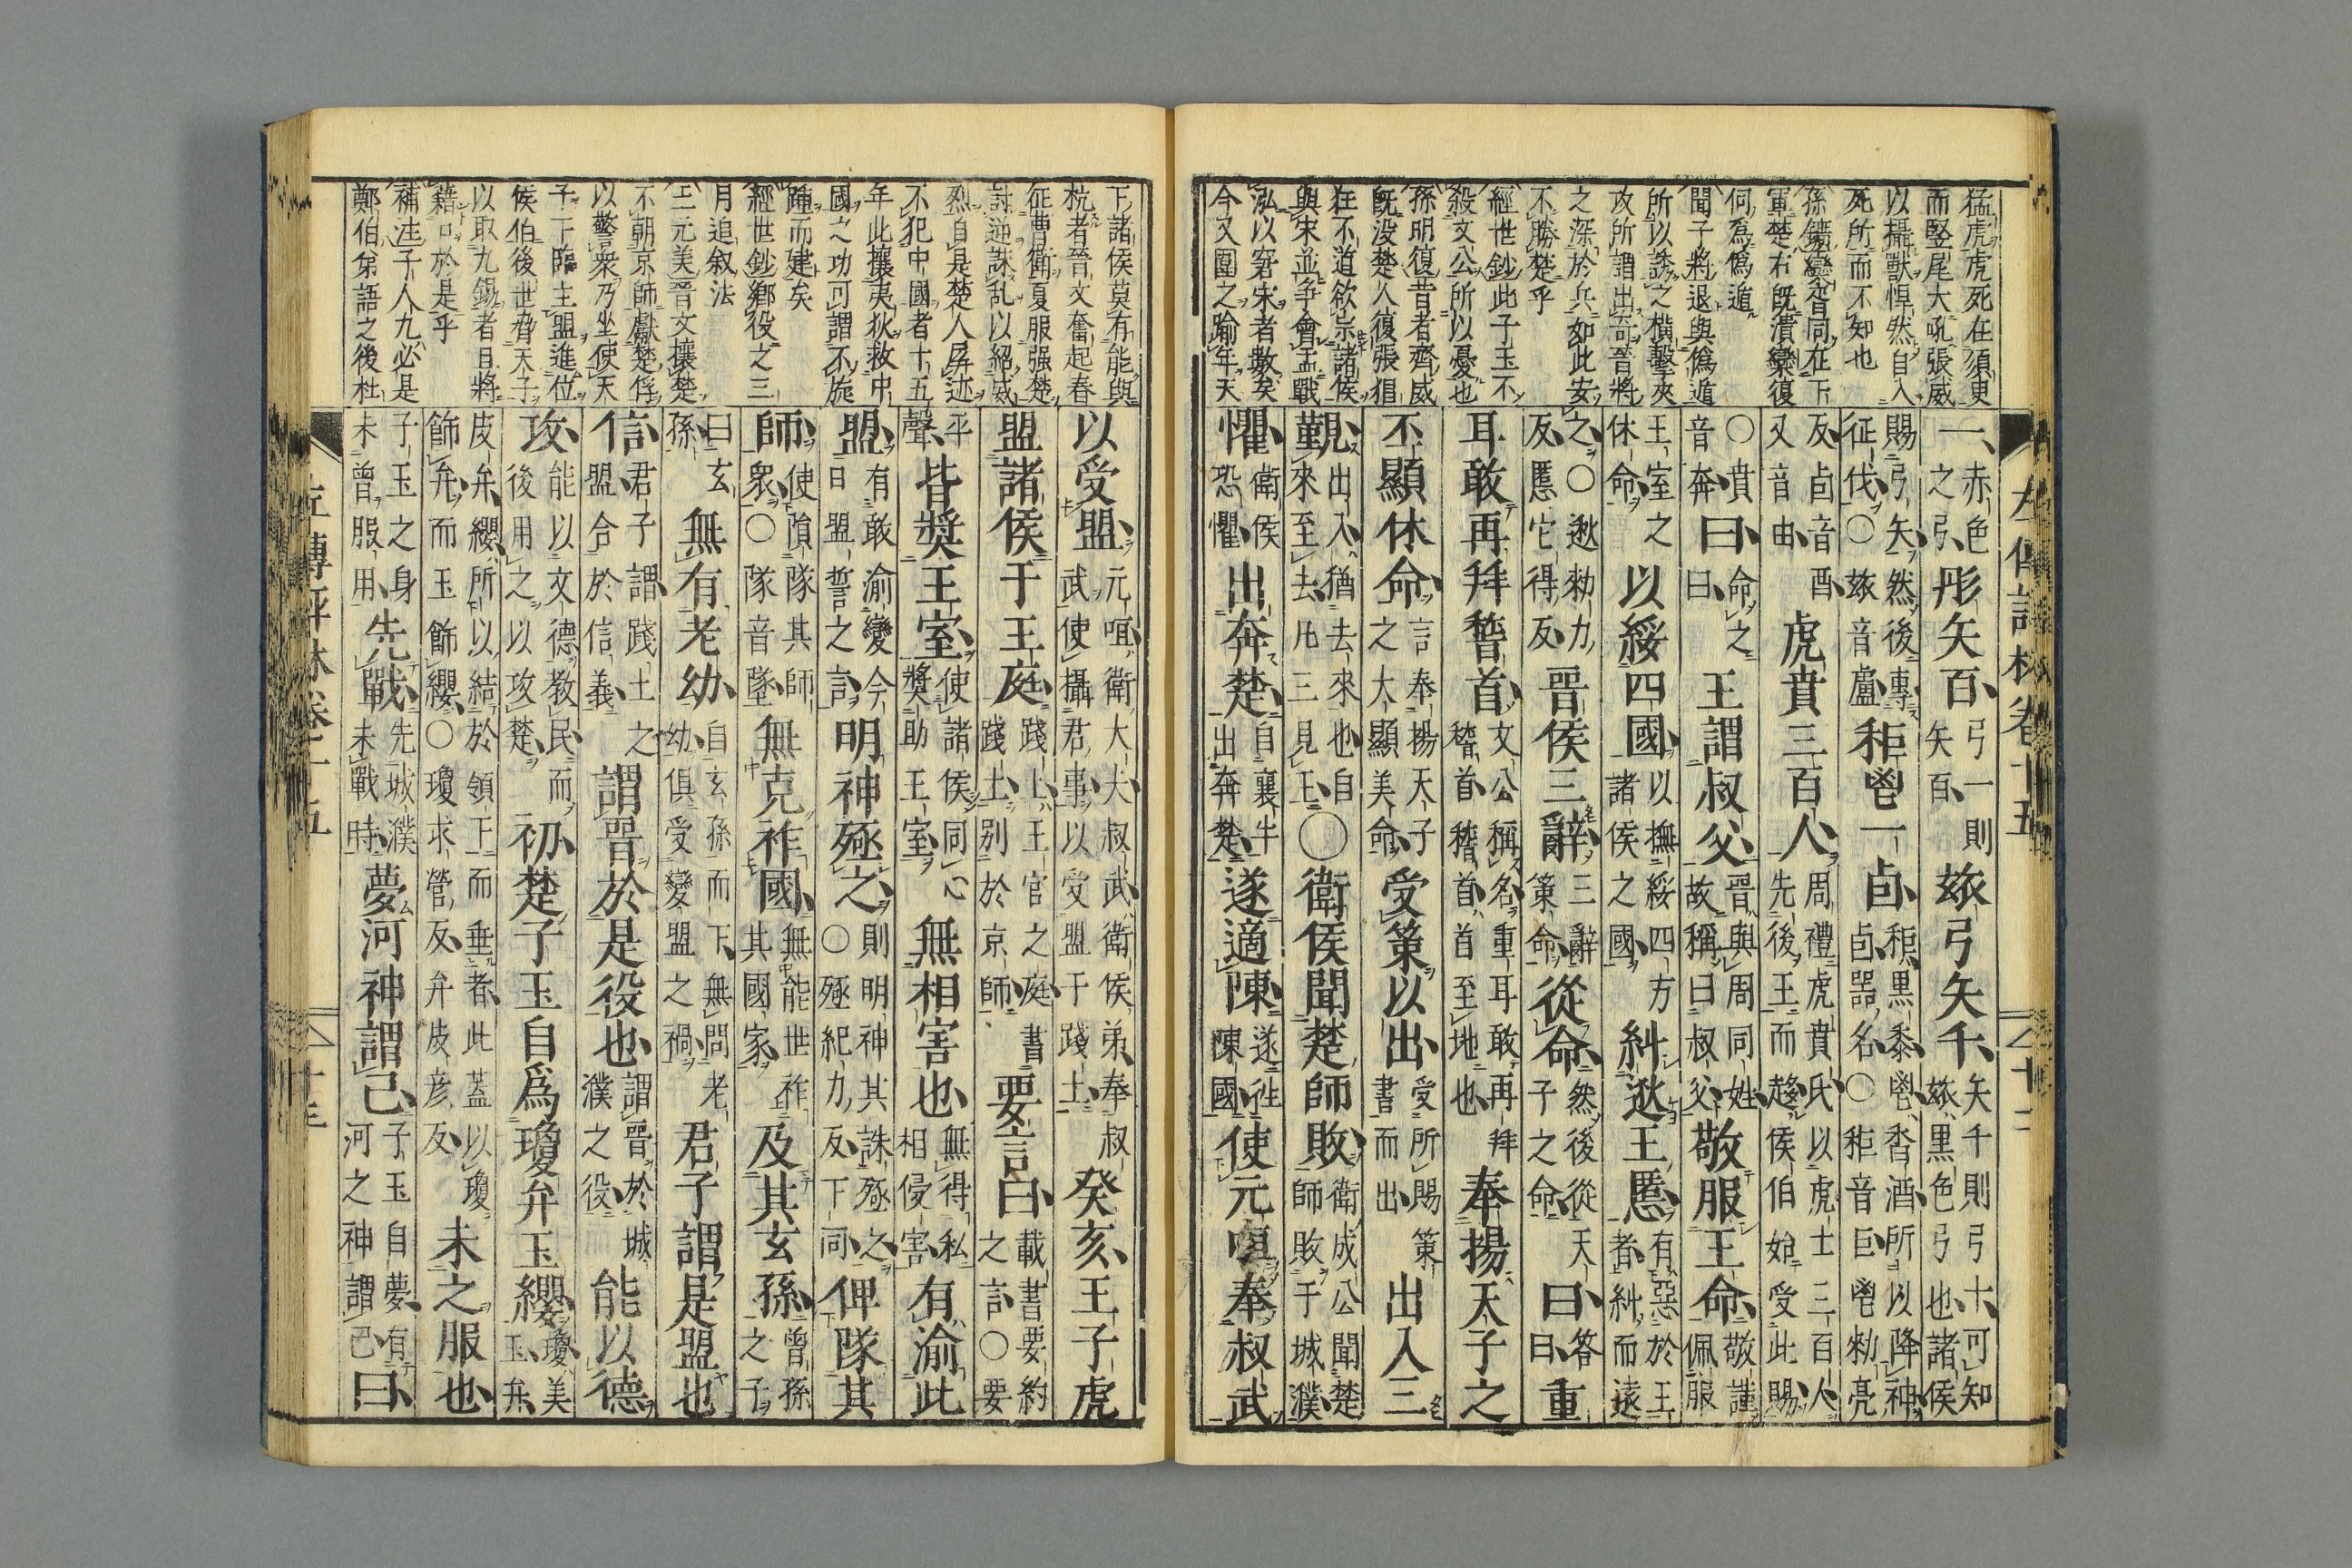 猛虎虎死在須臾
而竪尾大吼張威
以攝獸悍然自入
死所而不知也
孫鑛欒胥同在下
軍楚右既潰欒復
何爲僞遁
聞子將退與僞遁
所以誘之横擊夾
攻所謂出奇晉將
之深於兵如此安
不勝楚乎
經世鈔此子玉不
殺文公所以憂也
孫明復昔者齊威
既没楚人復張猖
狂不道欲宗諸侯
與宋並争會盂戰
泓以窘宋者數矣
今又圍之踰年天
一赤色之弓彤矢百弓一則矢百玈弓矢千矢千則弓十可知玈黒色弓也諸侯
賜弓矢然後專征伐〇玈音盧秬鬯一卣秬黒黍鬯香酒所以降神卣器名〇秬音巨鬯勑亮
反卣音酉又音由虎賁三百人周禮虎賁氏以虎士三百人先後王而趍侯伯始受此賜
〇賁音奔曰命之曰王謂叔父晉與周同姓故稱曰叔父敬服王命敬謹佩服
王室之休命以綏四國以撫綏四方諸侯之國糾逖王慝有惡於王者糾而遠
之〇逖勑力反慝它得反晉侯三辭三辭策命從命然後從天子之命曰答曰重
耳敢再拜稽首文公稱名重耳敢再拜稽首稽首首至地也奉揚天子之
丕顯休命言奉揚天子之大顯美命受策以出受所賜策書而出出入三
覲出入猶去來也自來至去凡三見王〇衛侯聞楚師敗衛成公聞楚師敗于城濮
懼衛侯恐懼出奔楚自襄牛出奔楚遂適陳遂往陳國使元咺奉叔武
左傳評林卷十五
下諸侯莫有能與
杭者晉文奮起春
征曹衛夏服强楚
討逆誅乱以紹威
烈自是楚人屏迹
不犯中國者十五
年此攘夷狄救中
國之功可謂不旋
踵而建矣
經世鈔鄉役之三
月追叙法
王元美晉文攘楚
不朝京師獻楚俘
以警衆乃坐使天
子下臨主盟進位
侯伯後世脅天子
以取九錫者且將
藉口於是乎
補注子人九必是
鄭伯弟語之後杜
以受盟元咺衛大夫叔武衛侯弟奉叔武使攝君事以受盟于踐土癸亥王子虎
盟諸侯于王庭踐土王官之庭書踐土別於京師要言曰載書要約之言〇要
平聲皆奬王室使諸侯同心奬助王室無相害也無得私相侵害有渝此
盟有敢渝變今日盟誓之言明神殛之則明神其誅殛之〇殛紀力反下同俾隊其
師使隕隊其師衆〇隊音墜無克祚國無能世祚其國家及其玄孫曽孫之子
曰玄孫無有老幼自玄孫而下無問老幼俱受變盟之禍君子謂是盟也
信君子謂踐土之盟合於信義謂晉於是役也謂晉於城濮之役能以德
攻能以文德教民而後用之以攻楚初楚子玉自爲瓊弁玉纓瓊美玉弁
皮弁纓所以結於領下而垂者此蓋以瓊飾弁而玉飾纓〇瓊求營反弁皮彦反未之服也
子玉之身未曾服用先戰先城濮未戰時夢河神謂己子玉自夢有河之神謂己曰
左傳評林卷十五